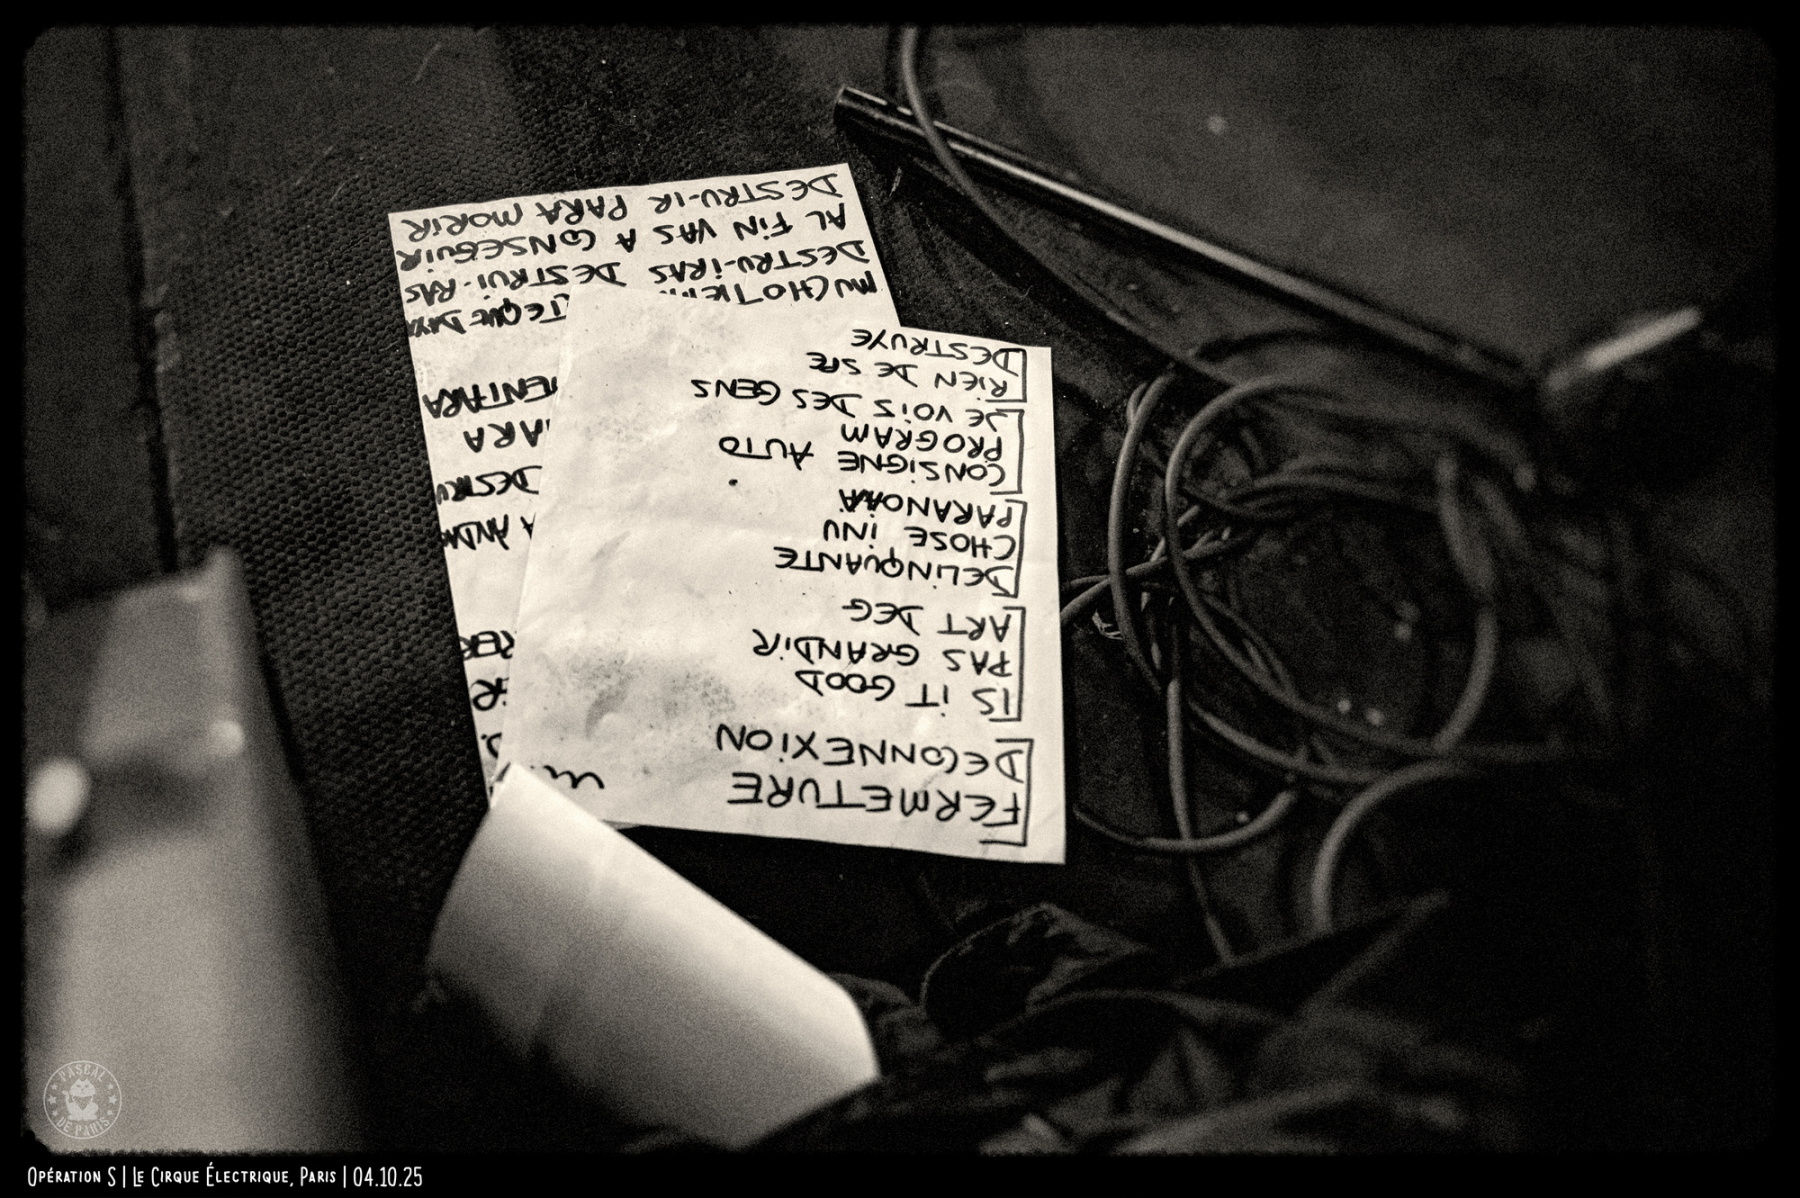 FERMETURE
DECONNEXION
IS IT GOOD
PAS GRANDIR
ART DEG
DELINQUANTE
CHOSE INU
PARANOIA
CONSIGNE AUTO
PROGRAM
JE VOIS DES GENS
RIEN DE SPE
DESTRUYE
DESTRU
MUCHO
DESTRU-IRAS DESTRUI-RAS
AL FIN VAS A CONSEGUIR
DESTRU-IR PARA MORIR
PASCAL DE PARIS
OPÉRATION S | LE CIRQUE ÉLECTRIQUE, PARIS | 04.10.25